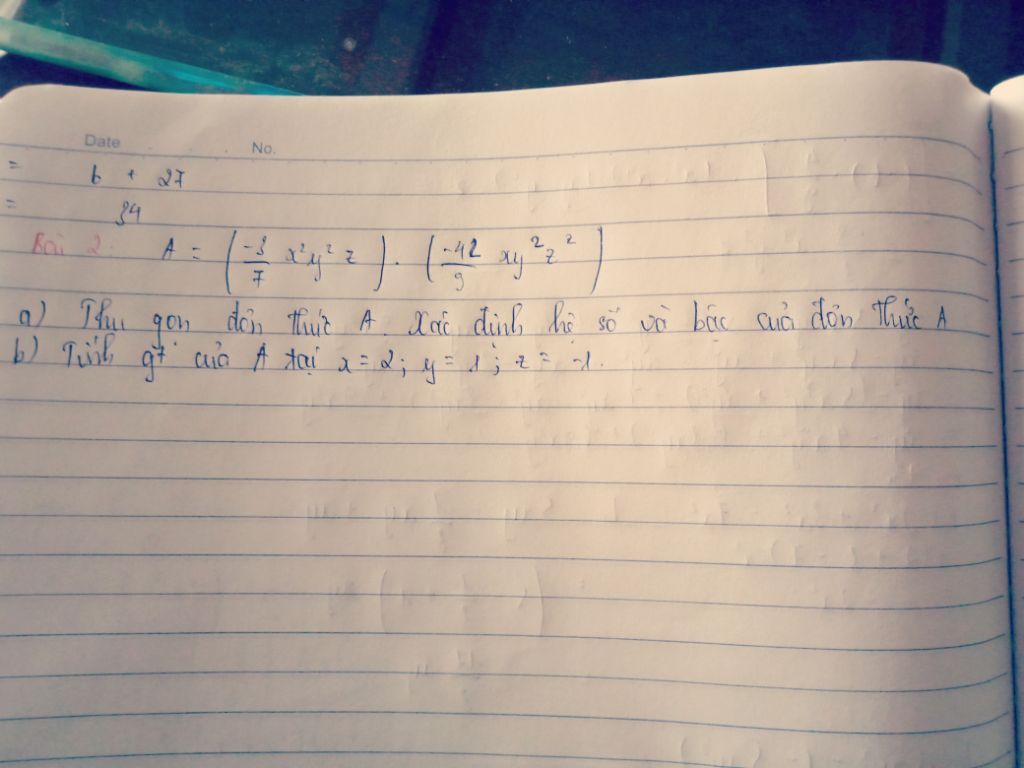 Date No.
= 6 + 27
= 34
Bài 2: A = (-3/7 x²y²z) . (-42/9 xy²z²)
a) Thu gọn đơn thức A. Xác định hệ số và bậc của đơn thức A
b) Tính gt của A tại x = 2; y = 1; z = -1.